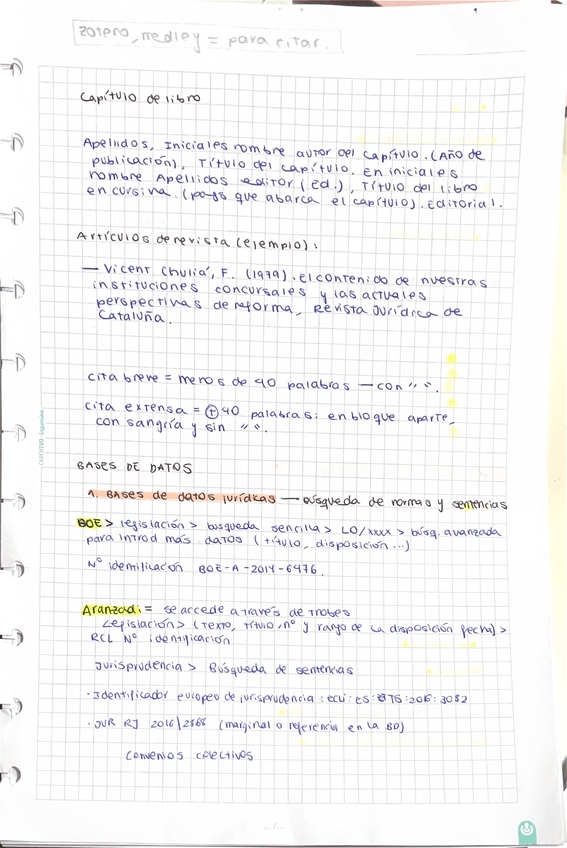 zotero, medley = para citar.
Capítulo de libro
Apellidos, Iniciales nombre autor del capítulo. (Año de
publicación), Título del capítulo. en iniciales
nombre Apellidos editor (Ed.), Título del libro
en cursiva. (pags que abarca el capítulo). Editorial.
Artículos de revista (ejemplo):
— Vicent Chuliá, F. (1979). El contenido de nuestras
instituciones concursales y las actuales
perspectivas de reforma, Revista Jurídica de
Cataluña.
cita breve = menos de 40 palabras — con " ".
cita extensa = + 40 palabras: en bloque aparte,
con sangría y sin " ".
BASES DE DATOS
1. BASES de datos jurídicas — Búsqueda de normas y sentencias
BOE > legislación > busqueda sencilla > LO/xxxx > búsq. avanzada
para introd más datos (título, disposición ...)
Nº identificación BOE-A-2014-6476.
Aranzadi = se accede a través de trobes
Legislación > (Texto, título, nº y rango de la disposición fecha) >
RCL Nº identificación
Jurisprudencia > Búsqueda de sentencias
· Identificador europeo de jurisprudencia : ecli: ES: TS: 2016: 3082
· JUR RJ 2016/ (marginal o referencia en la BD)
Convenios colectivos
.../...